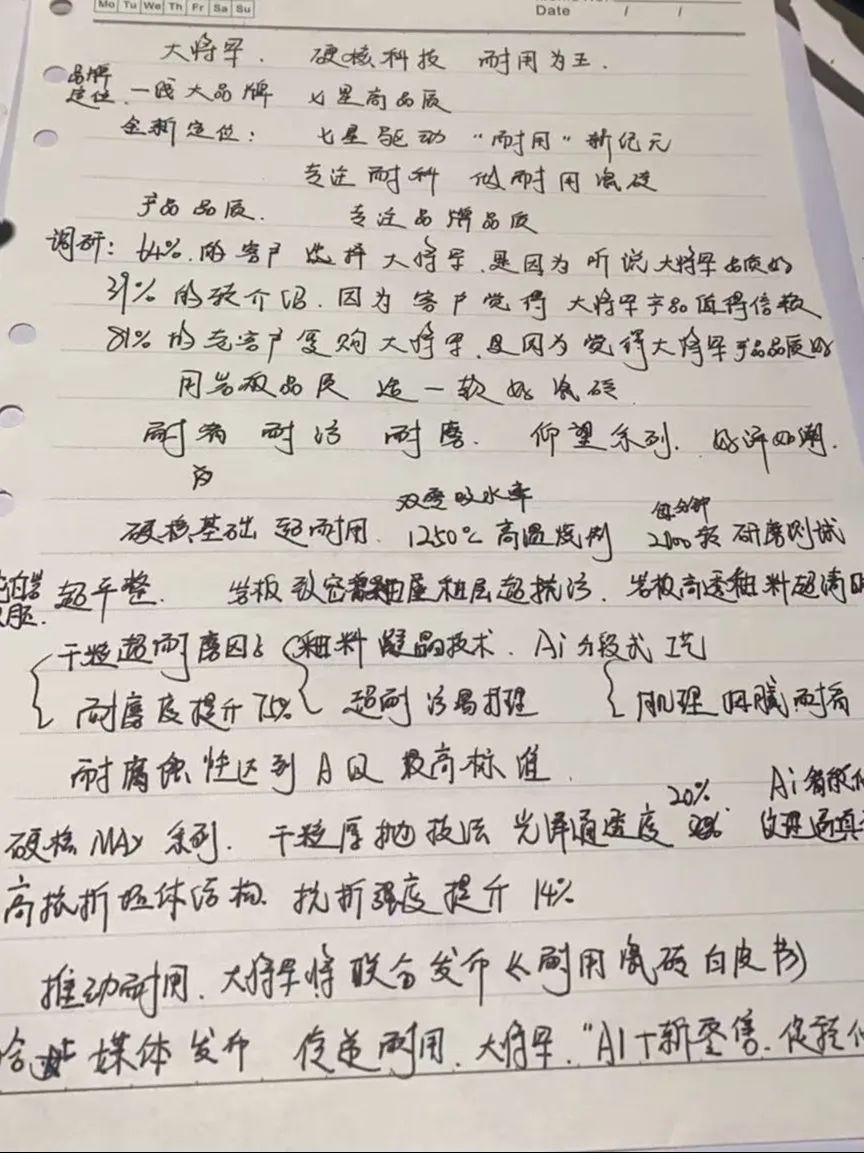 Mo Tu We Th Fr Sa Su
Date / /
大将军. 硬核科技 耐用为王.
品牌
定位. 一线大品牌 七星高品质
全新定位: 七星驱动 "耐用"新纪元
专注耐科 做耐用瓷砖
产品品质. 专注品牌品质
调研: 64%.的客户选择大将军.是因为听说大将军品质好
39%的转介绍.因为客户觉得大将军产品值得信赖
81%的老客户复购大将军.是因为觉得大将军产品品质好
用岩板品质 造一款好瓷砖
耐 耐污 耐磨. 仰望系列. 好评如潮.
双零吸水率
每分钟
硬核基础 超耐用. 1250℃高温烧制 2100转研磨测试
超平整. 岩板致密釉层超抗污. 岩板高透釉料超清
干粒超耐磨因子 釉料 晶技术. Ai分段式工艺
耐磨度提升75% 超耐污易打理 肌理细腻耐看
耐腐蚀性达到A级最高标准.
20% Ai
硬核MAX系列. 干粒厚抛技法 光泽通透度 纹理逼真
高抗折坯体结构. 抗折强度提升14%
推动耐用. 大将军将联合发布《耐用瓷砖白皮书》
媒体发布 传递耐用. 大将军. "AI+新零售.